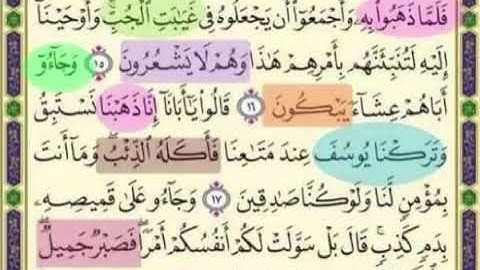 فَلَمَّا ذَهَبُوا۟ بِهِۦ وَأَجْمَعُوٓا۟ أَن يَجْعَلُوهُ فِى غَيَٰبَتِ ٱلْجُبِّ ۚ وَأَوْحَيْنَآ
إِلَيْهِ لَتُنَبِّئَنَّهُم بِأَمْرِهِمْ هَٰذَا وَهُمْ لَا يَشْعُرُونَ ١٥ وَجَآءُوٓ
أَبَاهُمْ عِشَآءً يَبْكُونَ ١٦ قَالُوا۟ يَٰٓأَبَانَآ إِنَّا ذَهَبْنَا نَسْتَبِقُ
وَتَرَكْنَا يُوسُفَ عِندَ مَتَٰعِنَا فَأَكَلَهُ ٱلذِّئْبُ ۖ وَمَآ أَنتَ
بِمُؤْمِنٍ لَّنَا وَلَوْ كُنَّا صَٰدِقِينَ ١٧ وَجَآءُو عَلَىٰ قَمِيصِهِۦ
بِدَمٍ كَذِبٍ ۚ قَالَ بَلْ سَوَّلَتْ لَكُمْ أَنفُسُكُمْ أَمْرًا ۖ فَصَبْرٌ جَمِيلٌ ۖ